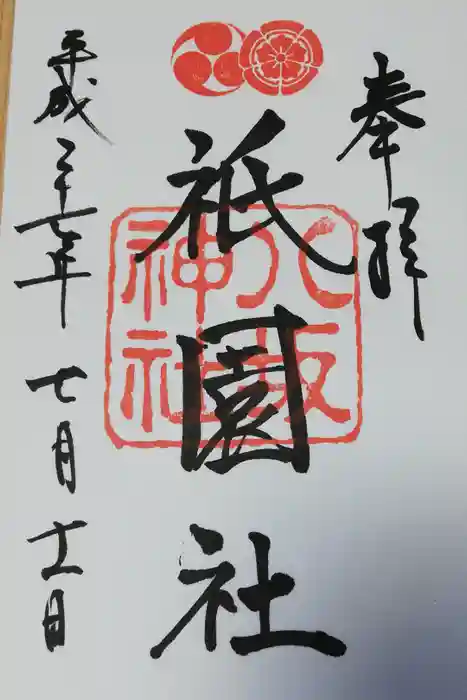 奉拝
八坂神社
祇園社
平成二十七年 七月十一日